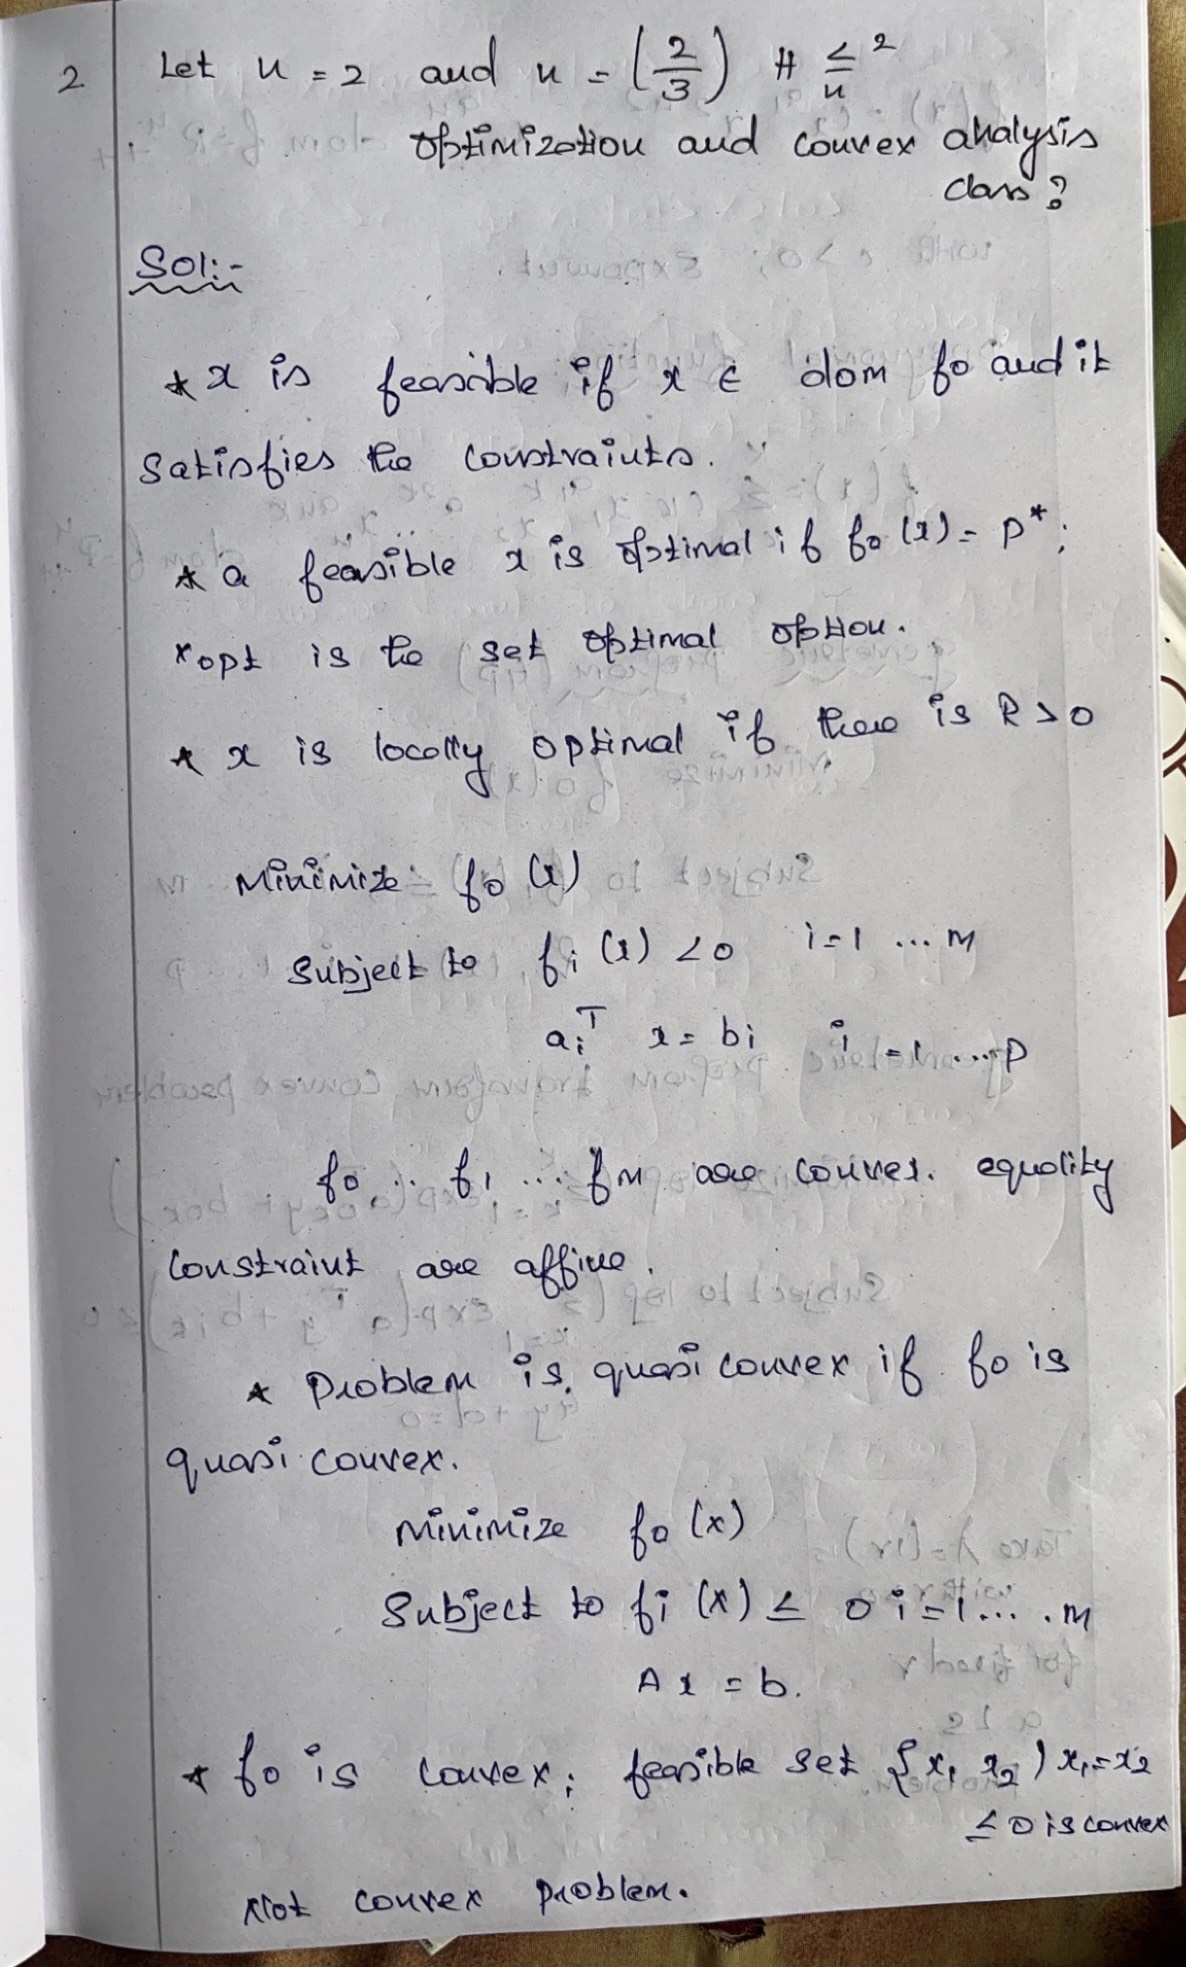 2 Let n = 2 and n = (2/3) # ≤/n 2
Optimization and convex analysis
class?
Sol:-
* x is feasible if x ∈ dom fo and it
satisfies the constraints.
* a feasible x is optimal if fo (x) = p*;
xopt is the set optimal option.
* x is locally optimal if there is R > 0
Minimize fo (x)
Subject to fi (x) < 0 i = 1 ... m
aiT x = bi i = 1 ... p
fo .. f1 ... fm are convex. equality
constraint are affine.
* Problem is quasi convex if fo is
quasi convex.
minimize fo (x)
Subject to fi (x) ≤ 0 i = 1 .... m
Ax = b.
* fo is convex; feasible set {x1 x2) x1 = x2
≤ 0 is convex
Not convex problem.